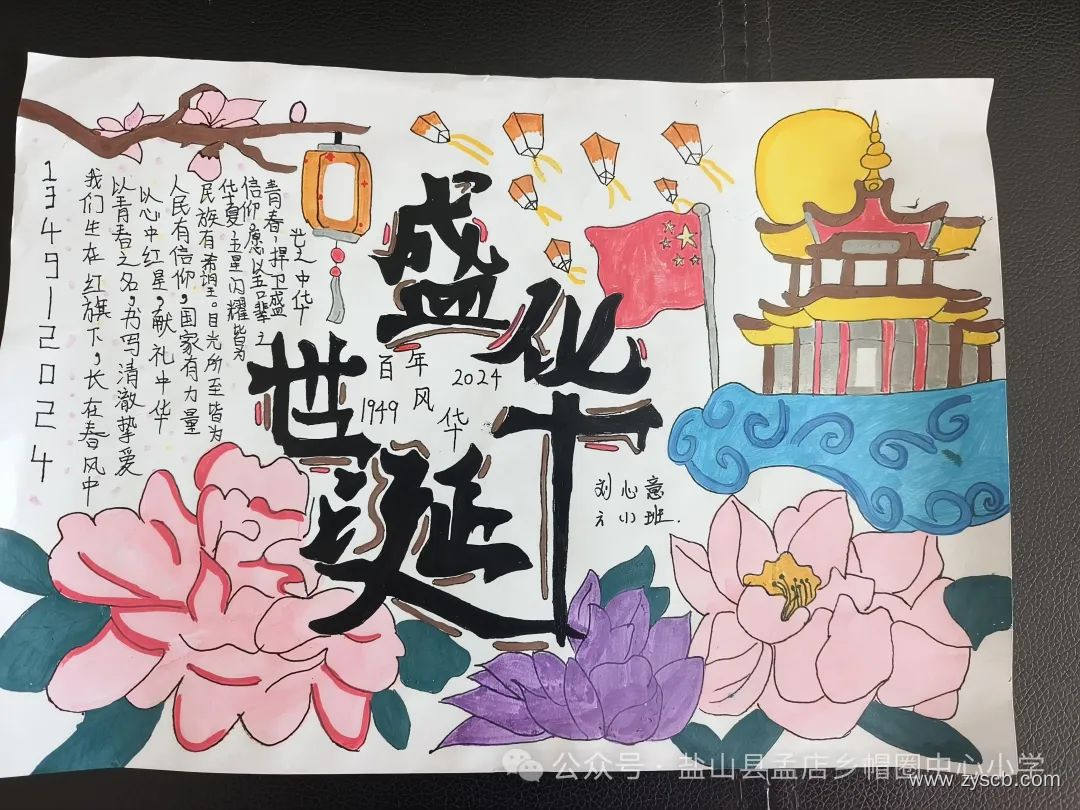 1349—2024
我们生在红旗下,长在春风中
以青春之名,书写清澈挚爱
以心中红星,献礼中华
人民有信仰,国家有力量
民族有希望。目光所至皆为
华夏,五星闪耀皆为
信仰,愿以吾辈之
青春,捍卫盛
世之中华
盛世
华诞
百年风华
1949
2024
刘心意
六小班.
公众号·盐山县孟店乡帽圈中心小学
www.zyscb.com